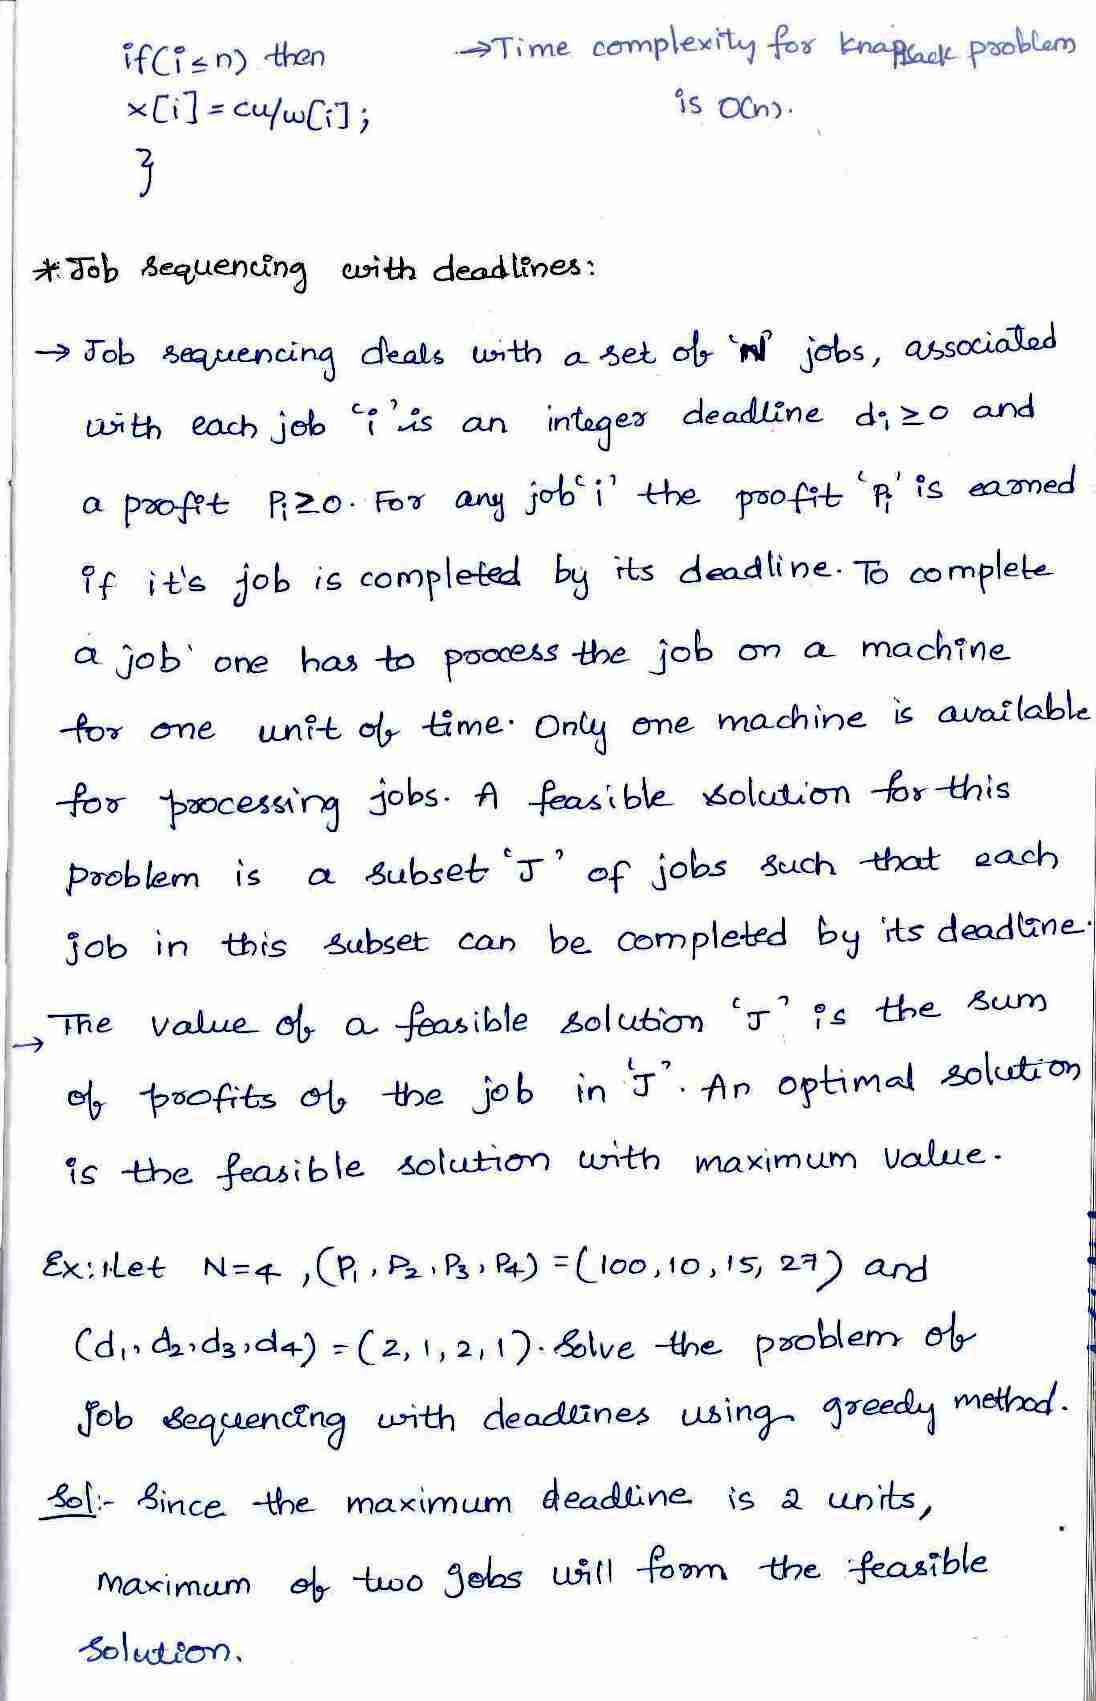 if(i≤n) then
→Time complexity for knapsack problem
x[i]=cu/w[i];
is O(n).
}
*Job sequencing with deadlines:
→ Job sequencing deals with a set of 'N' jobs, associated
with each job 'i' is an integer deadline di≥0 and
a profit Pi≥0. For any job 'i' the profit 'Pi' is earned
if it's job is completed by its deadline. To complete
a job one has to process the job on a machine
for one unit of time. Only one machine is available
for processing jobs. A feasible solution for this
problem is a subset 'J' of jobs such that each
job in this subset can be completed by its deadline.
→ The value of a feasible solution 'J' is the sum
of profits of the job in 'J'. An optimal solution
is the feasible solution with maximum value.
Ex:1.Let N=4, (P1, P2, P3, P4) = (100,10,15,27) and
(d1, d2, d3, d4) = (2,1,2,1). Solve the problem of
Job sequencing with deadlines using greedy method.
Sol:- Since the maximum deadline is 2 units,
maximum of two jobs will form the feasible
solution.